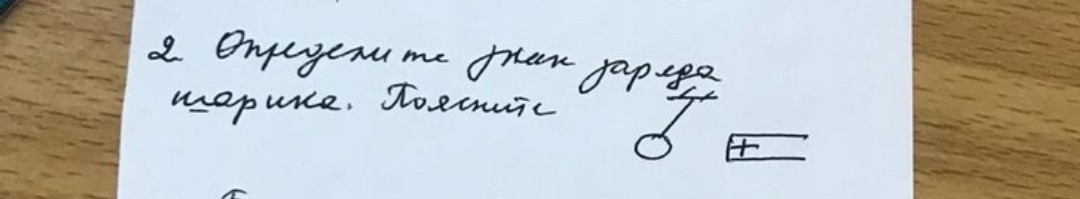 2. Определите знак заряда
шарика. Поясните
+